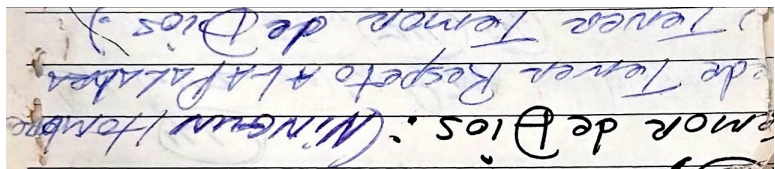 emor de Dios: (Ningun Hombre
ede Tener Respeto A LA PALABRA
) Tener Temor de Dios.)